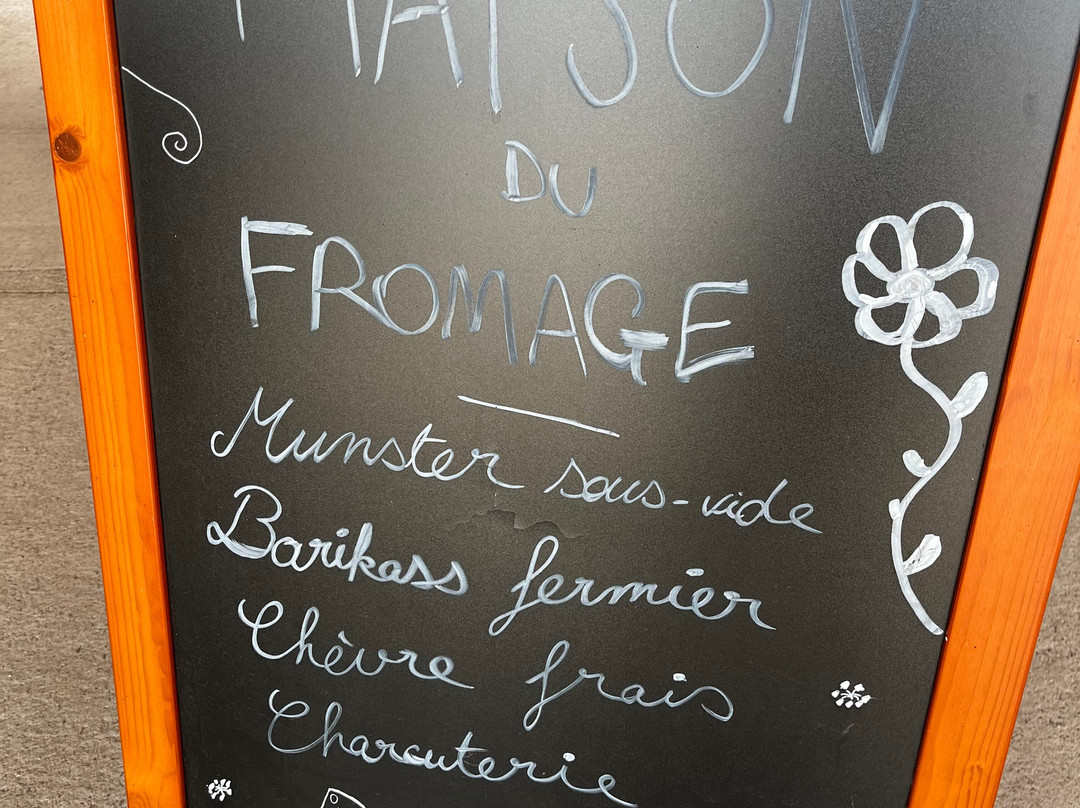 MAISON
DU
FROMAGE
Munster sous-vide
Barikass fermier
Chèvre frais
Charcuterie